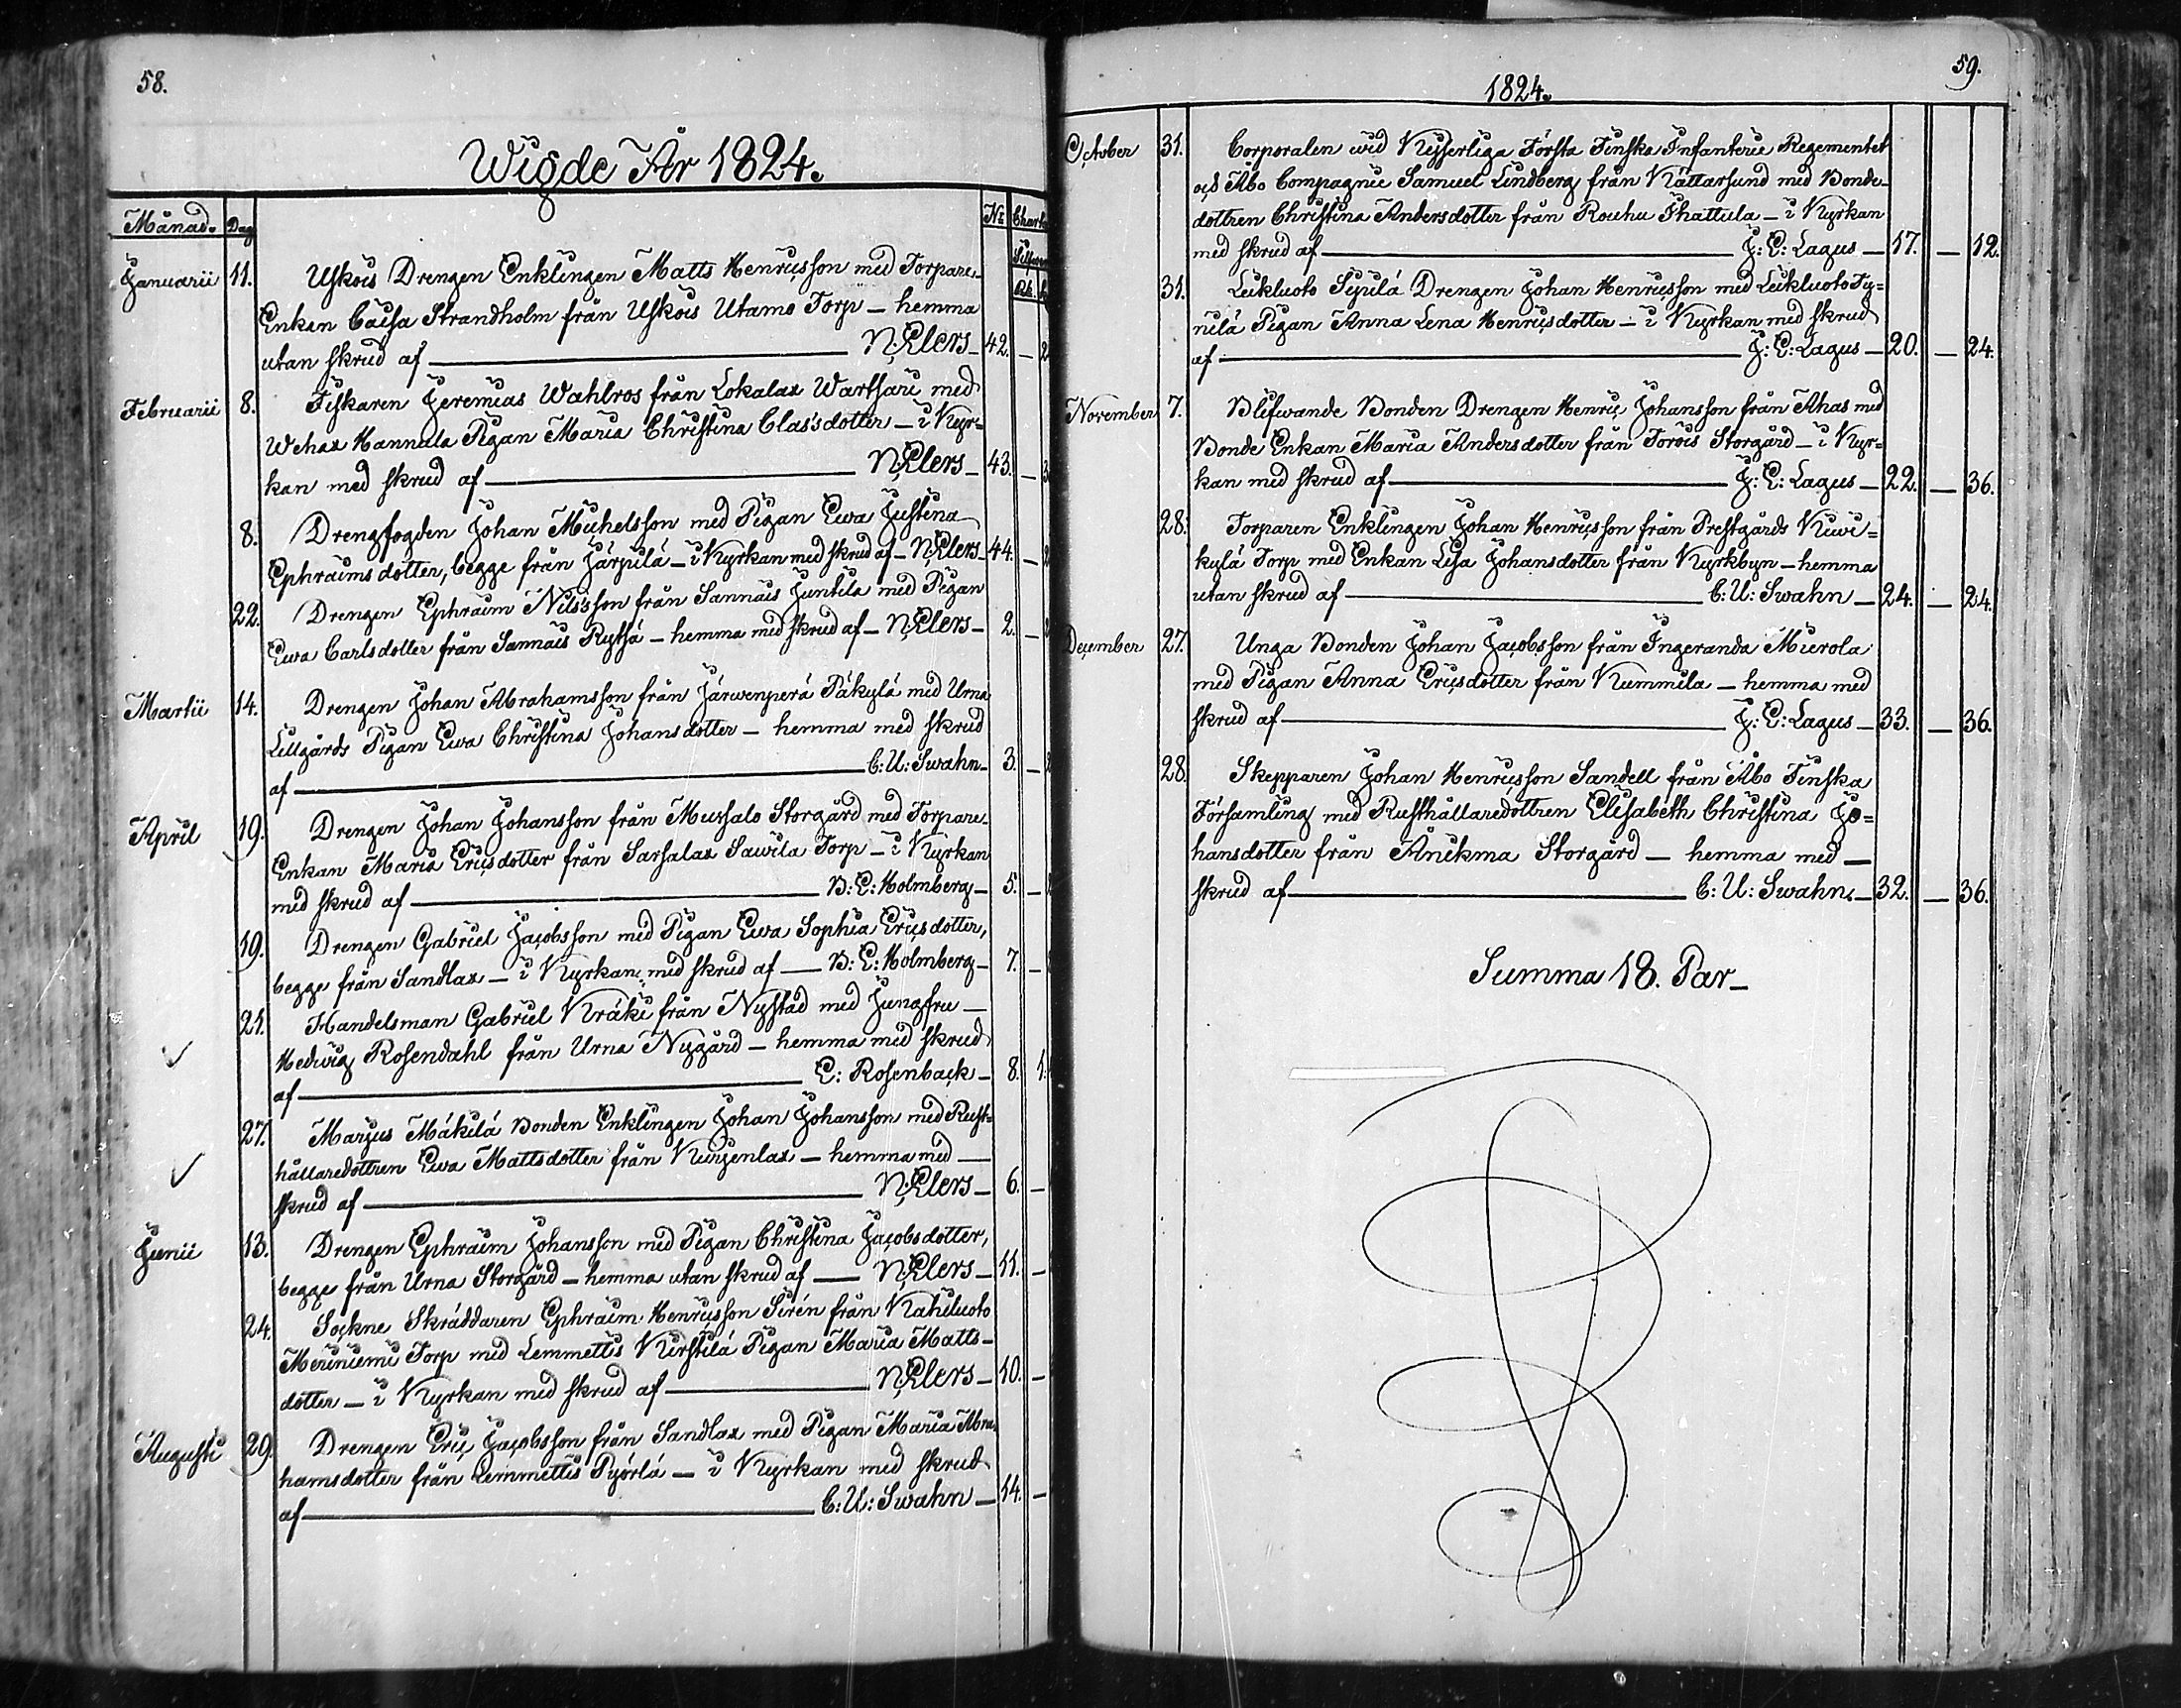 58.
Wigde År 1824.
Månad. Dag No Charta
Silfwer
Januarii 11. Uskois Drengen Enklingen Matts Henricsson med Torpare-
Enkan Caisa Strandholm från Uskois Utamo Torp — hemma
utan skrud af — N. Elers — 42. — 2
Februarii 8. Fiskaren Jeremias Wahlros från Lokalax Wartsari med
Wehax Hannula Pigan Maria Christina Clas'sdotter — i Kyr=
kan med skrud af — N. Elers — 43. — 3
8. Drengfogden Johan Michelsson med Pigan Ewa Justina
Ephraims dotter, begge från Järpilä — i Kyrkan med skrud af — N. Elers — 44. — 2
22. Drengen Ephraim Nils'son från Sannais Juntila med Pigan
Ewa Carlsdotter från Sannais Rytsä — hemma med skrud af — N. Elers — 2. — 2
Martii 14. Drengen Johan Abrahamsson från Järwenperä Päkylä med Urna
Lillgårds Pigan Ewa Christina Johansdotter — hemma med skrud
af — C: U: Swahn — 3. — 2
April 19. Drengen Johan Johansson från Mussalo Storgård med Torpare-
Enkan Maria Ericsdotter från Sarsalax Sawila Torp — i Kyrkan
med skrud af — B: E: Holmberg — 5. —
19. Drengen Gabriel Jacobsson med Pigan Ewa Sophia Ericsdotter,
begge från Sandlax — i Kyrkan med skrud af — B: E: Holmberg — 7. —
21. Handelsman Gabriel Kräki från Nystad med Jungfru —
Hedwig Rosendahl från Urna Nygård — hemma med skrud
af — E: Rosenback — 8. 1.
27. Marjus Mäkilä Bonden Enklingen Johan Johansson med Rust=
hållaredottren Ewa Mattsdotter från Kurjenlax — hemma med —
skrud af — N. Elers — 6. —
Junii 13. Drengen Ephraim Johansson med Pigan Christina Jacobsdotter,
begge från Urna Storgård — hemma utan skrud af — N. Elers — 11. —
24. Sockne Skräddaren Ephraim Henricsson Sirén från Kahiluoto
Meriniemi Torp med Lemmettis Kirstilä Pigan Maria Matts-
dotter — i Kyrkan med skrud af — N. Elers — 10. —
Augusti 29. Drengen Eric Jacobsson från Sandlax med Pigan Maria Abra-
hamsdotter från Lemmettis Pyörlä — i Kyrkan med skrud
af — C: U: Swahn — 14. —
59.
1824.
October 31. Corporalen wid Kejserliga Första Finska Infanterie Regementet
och Åbo Compagnie Samuel Lindberg från Kättarsund med Bonde-
dottren Christina Andersdotter från Rouhu Ihattula — i Kyrkan
med skrud af — J: E: Lagus — 17. — 12.
31. Leikluoto Sipilä Drengen Johan Henricsson med Leikluoto Ty=
nilä Pigan Anna Lena Henricsdotter — i Kyrkan med skrud
af — J: E: Lagus — 20. — 24.
November 7. Blifwande Bonden Drengen Henric Johansson från Ahas med
Bonde Enkan Maria Andersdotter från Torois Storgård — i Kyr=
kan med skrud af — J: E: Lagus — 22. — 36.
28. Torparen Enklingen Johan Henricsson från Prestgårds Kiwi=
kylä Torp med Enkan Lisa Johansdotter från Kyrkbyn — hemma
utan skrud af — C: U: Swahn — 24. — 24.
December 27. Unga Bonden Johan Jacobsson från Ingeranda Mierola
med Pigan Anna Ericsdotter från Kummila — hemma med
skrud af — J: E: Lagus — 33. — 36.
28. Skepparen Johan Henricsson Sandell från Åbo Finska
Församling med Rusthållaredottren Elisabeth Christina Jo=
hansdotter från Änikma Storgård — hemma med —
skrud af — C: U: Swahn. — 32. — 36.
Summa 18. Par —